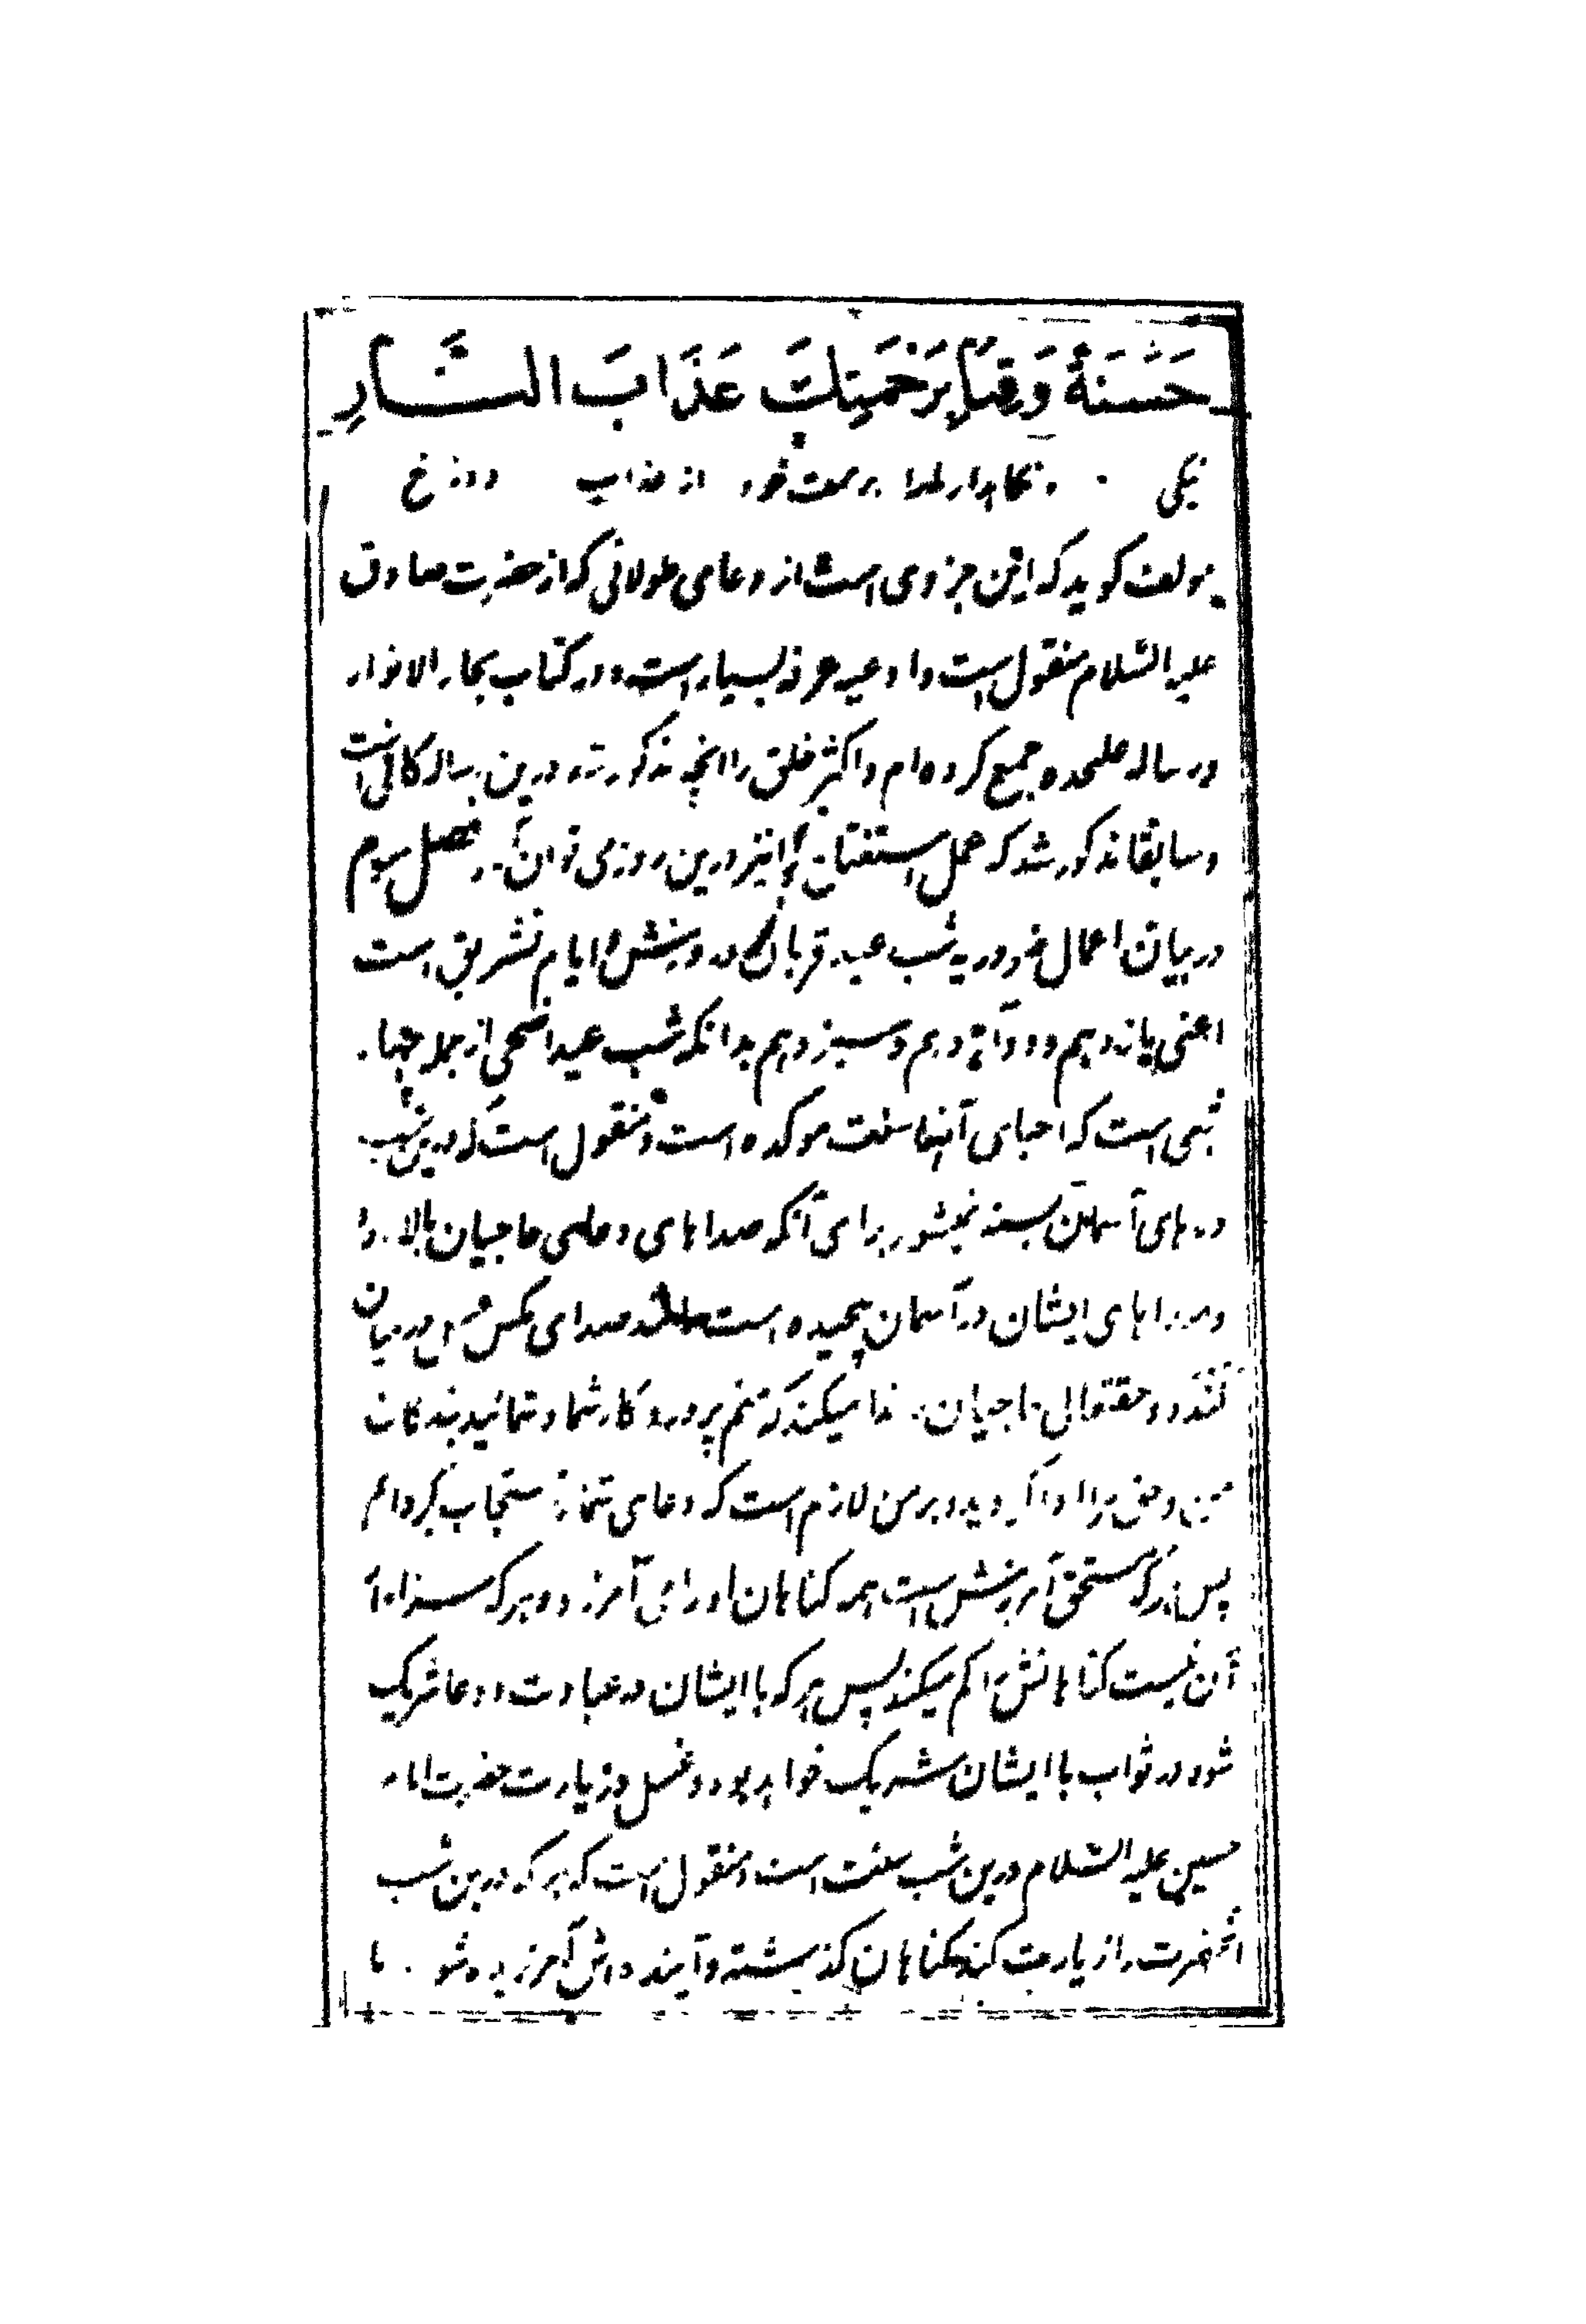 حَسَنَةً وَقِنَا بِرَحْمَتِكَ عَذَابَ النَّارِ
نیکی و نکاهدار ما را برحمت خود از عذاب دوزخ
مولف کوید که این جزوی است از دعای طولانی که از حضرت صادق
علیه السلام منقول است و ادعیه عرفه بسیار است و در کتاب بحار الانوار
و رساله علیحده جمع کرده ام و اکثر خلق را انچه مذکور شد درین رساله کافی است
و سابقا مذکور شد که عمل استفتاح را نیز درین روز می توان کرد فصل سوم
در بیان اعمال ضروریه شب عید قربان و روزش و ایام تشریق است
اعنی یازدهم و دوازدهم و سیزدهم بدانکه شب عید اضحی از جمله چهار
شبی است که احیای آنها سنت موکده است و منقول است که درین شب
درهای آسمان بسته نمیشود برای آنکه صداهای دعای حاجیان بالا رود
و صداهای ایشان در آسمان پیچیده است مانند صدای مکس عسل در میان
کندو و حقتعالی حاجیان را ندا میکند که منم پروردکار شما و شمائید بندکان
من و حق مرا ادا کردید و بر من لازم است که دعای شما را مستجاب کردانم
پس هرکه مستحق آمرزش است همه کناهان او را می آمرزد و هرکه سزاوار
آن نیست کناهانش را کم میکند پس هرکه با ایشان در عبادت و دعا شریک
شود در ثواب با ایشان شریک خواهد بود و غسل و زیارت حضرت امام
حسین علیه السلام درین شب سنت است و منقول است که هرکه درین شب
آنحضرت را زیارت کند کناهان کذشته و آینده اش آمرزیده شود اما